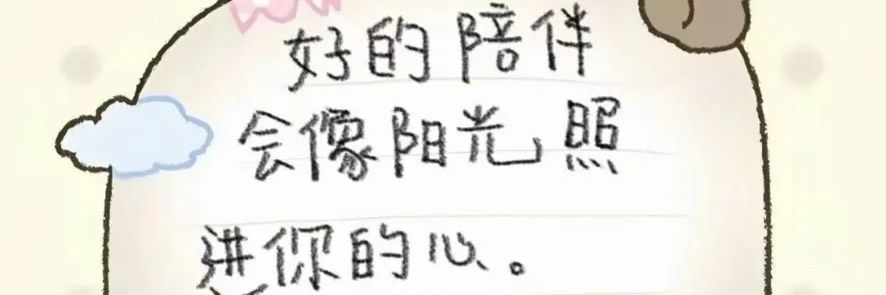 好的陪伴
会像阳光照
进你的心。